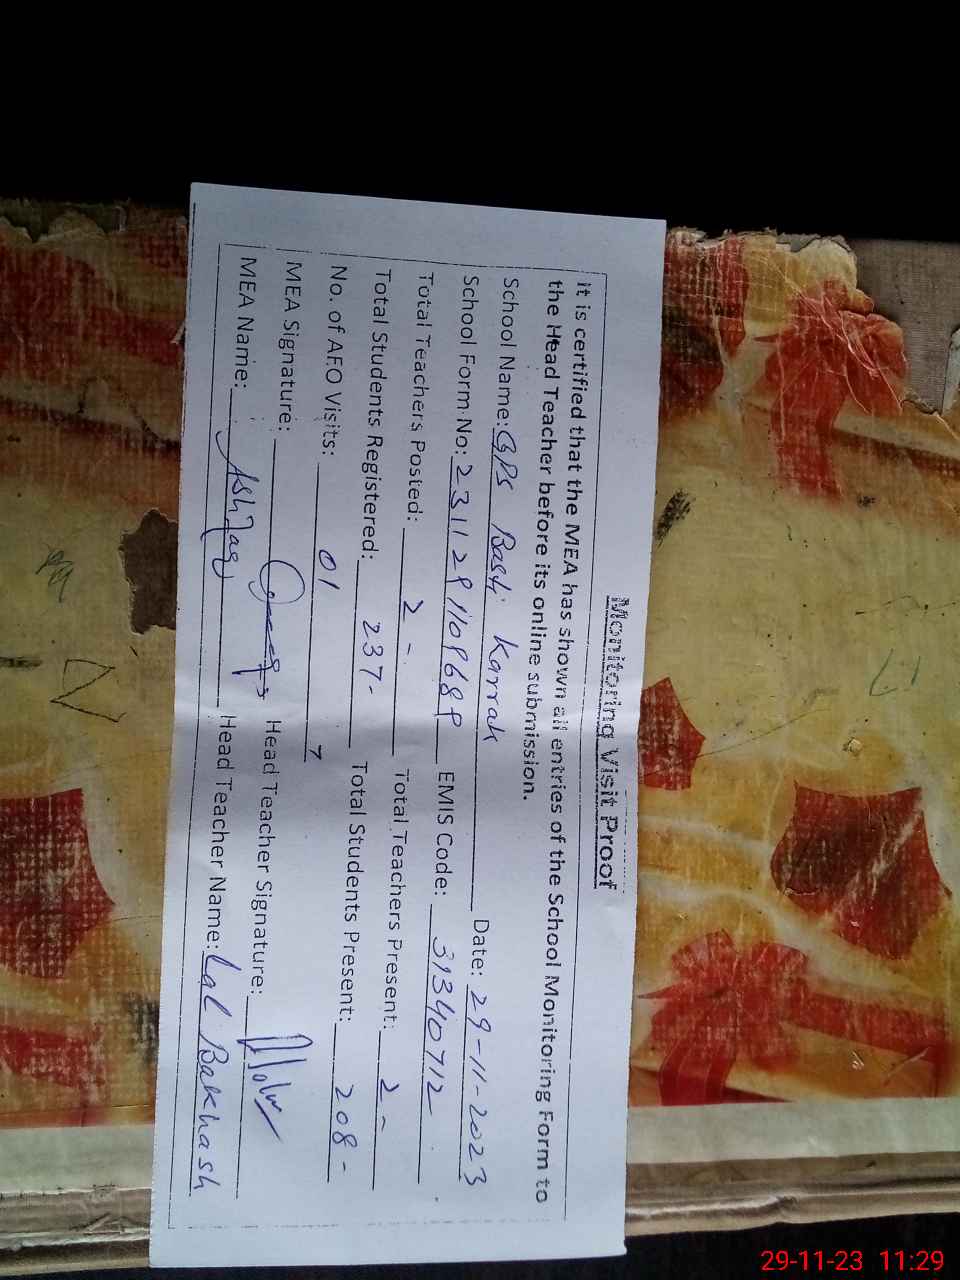 Monitoring Visit Proof
It is certified that the MEA has shown all entries of the School Monitoring Form to
the Head Teacher before its online submission.
School Name: GPS Basti Karrak Date: 29-11-2023
School Form No: EMIS Code: 31340712
Total Teachers Posted: 2 - Total Teachers Present: 2 -
Total Students Registered: 237 - Total Students Present: 208 -
No. of AEO Visits: 01
MEA Signature: Head Teacher Signature:
MEA Name: Ashfaq Head Teacher Name: Lal Bakhash
29-11-23 11:29